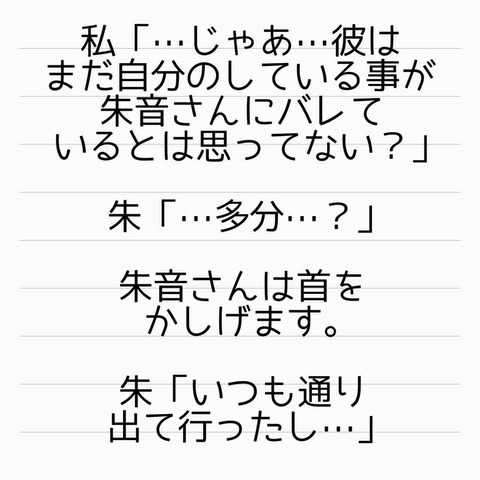 私「…じゃあ…彼は
まだ自分のしている事が
朱音さんにバレて
いるとは思ってない？」
朱「…多分…？」
朱音さんは首を
かしげます。
朱「いつも通り
出て行ったし…」